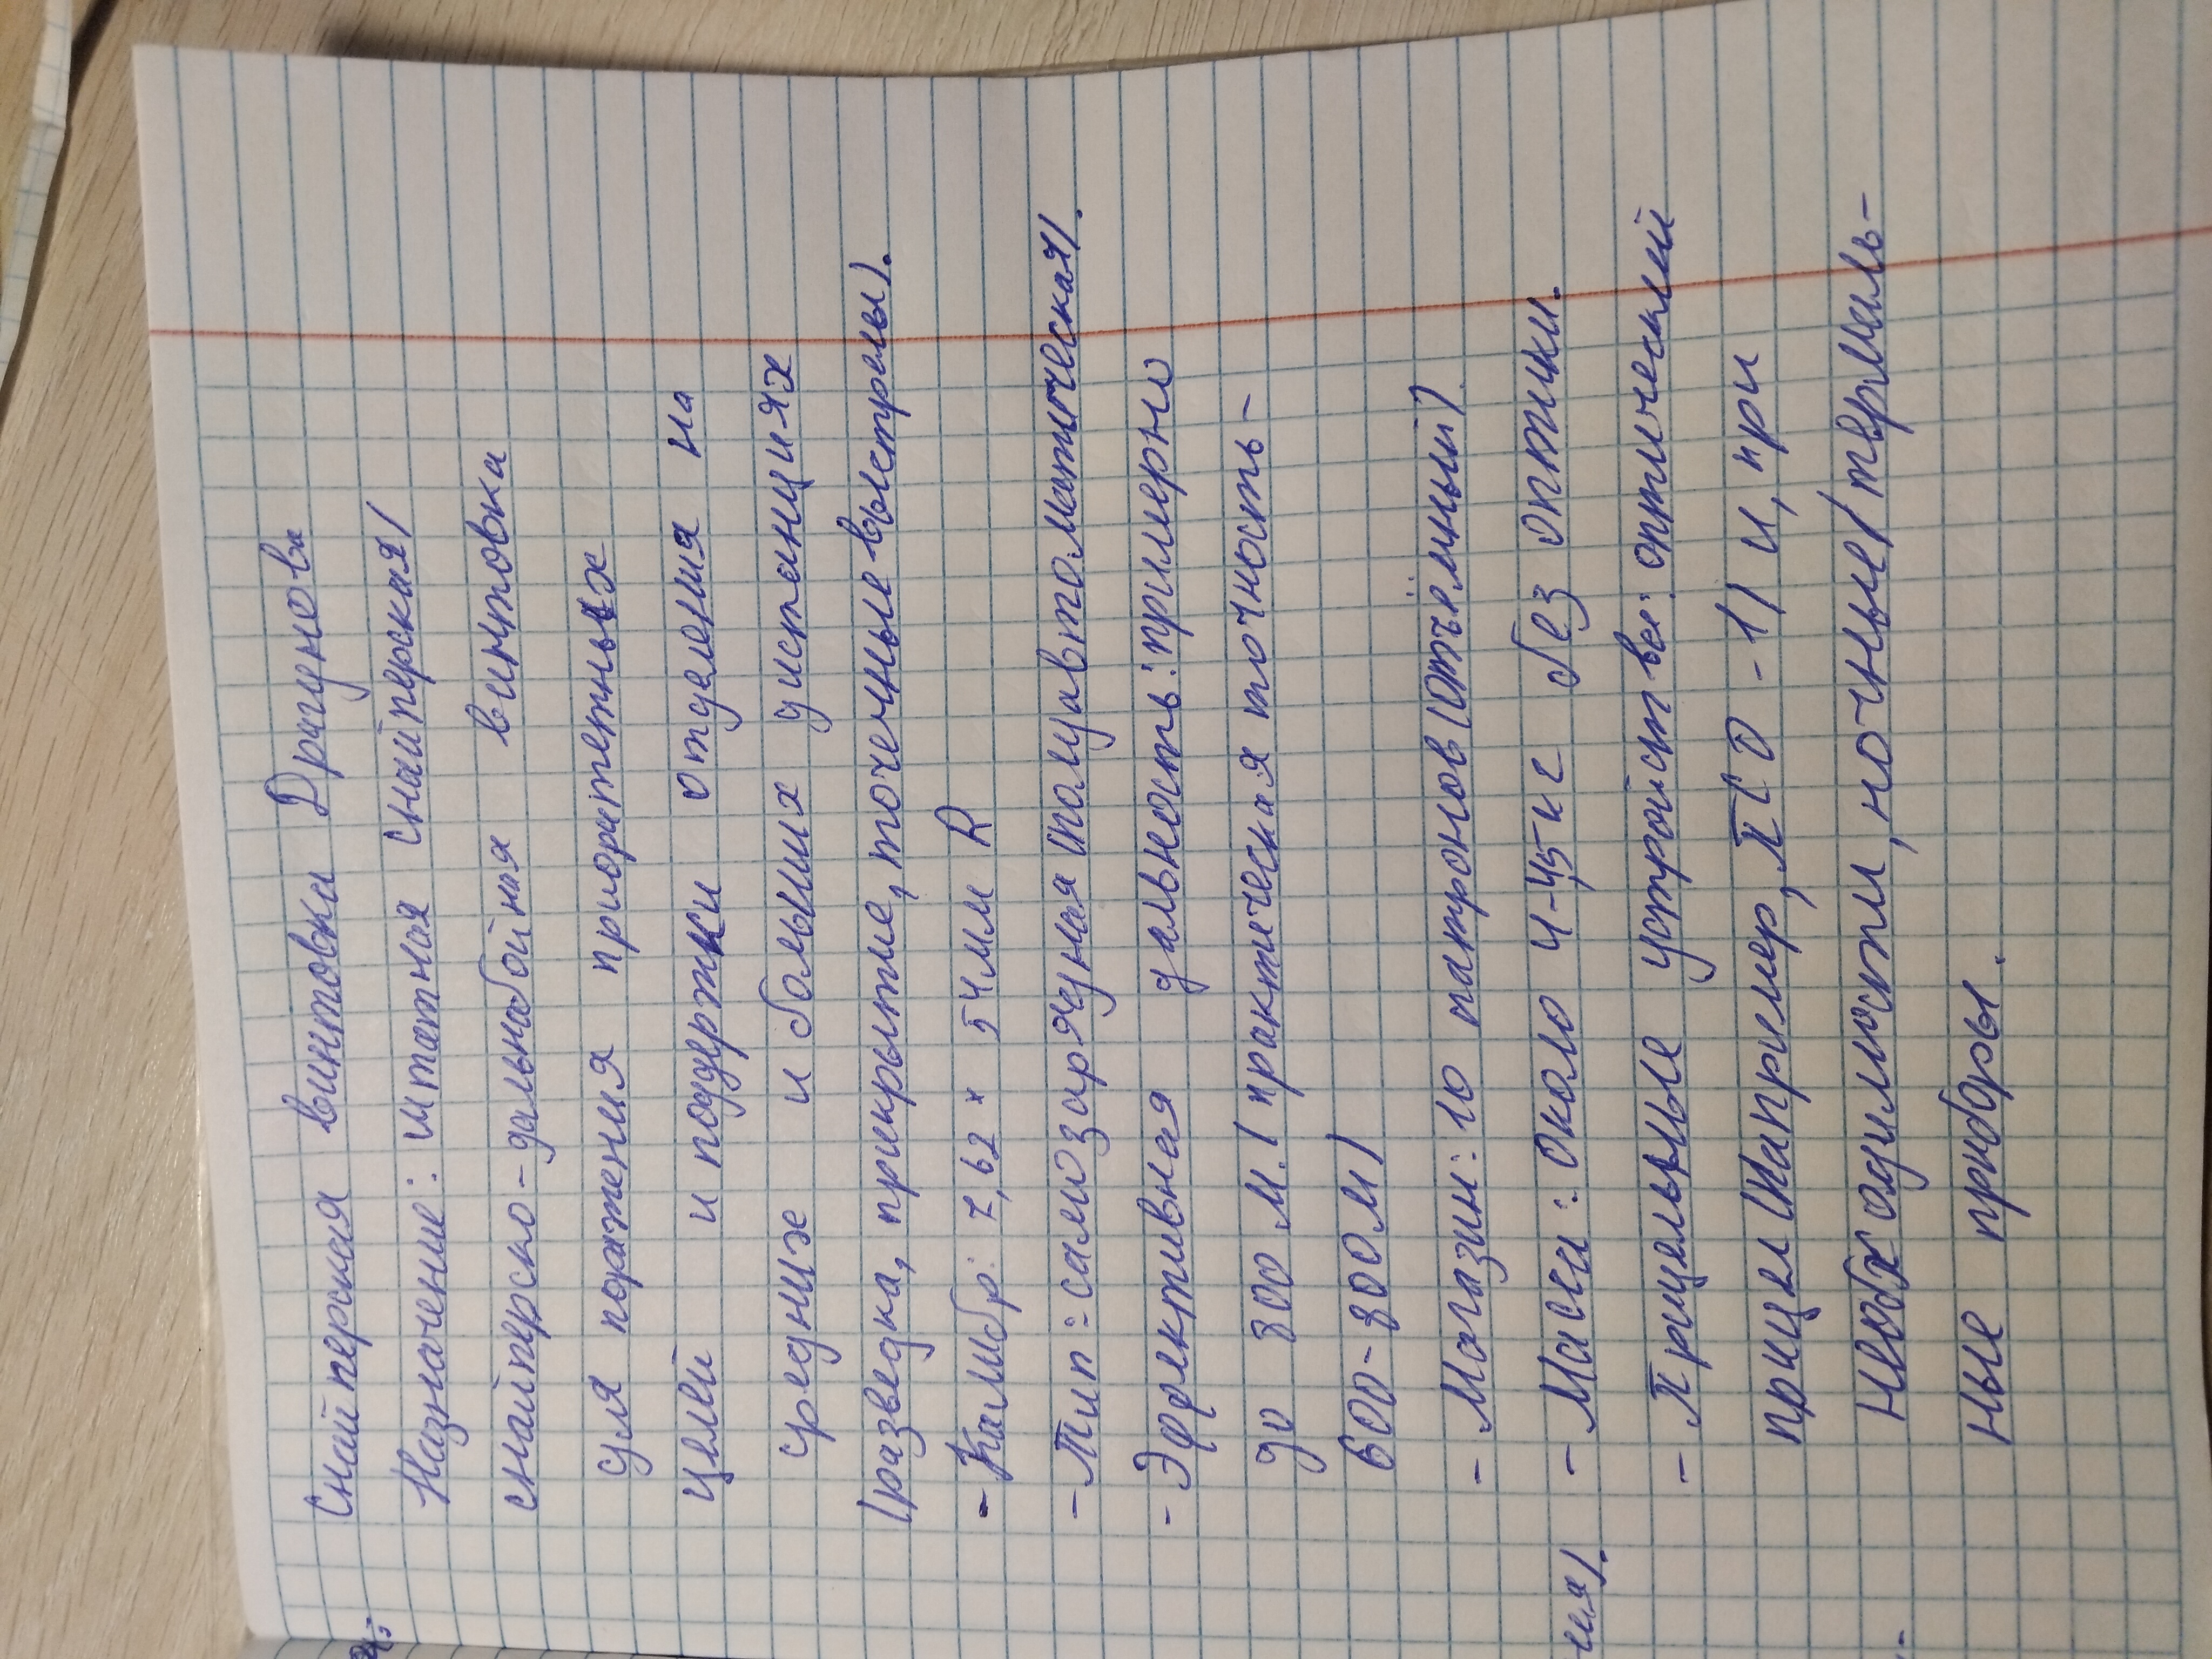 Снайперская винтовки Драгунова
Назначение: штатная снайперская/
снайперско-дальнобойная винтовка
для поражения приоритетных
целей и поддержки отделения на
средних и больших дистанциях
(разведка, прикрытие, точечные выстрелы).
- Калибр: 7,62 × 54 мм R
- Тип: самозарядная (полуавтоматическая).
- Эффективная дальность: примерно
до 800 м. (практическая точность -
600-800м)
- Магазин: 10 патронов (отъёмный)
- Масса: около 4-4,5 кг без оптики.
- Прицельные устройства: оптический
прицел (например, ПСО-1) и, при
необходимости, ночные/термаль-
ные приборы.
ния).